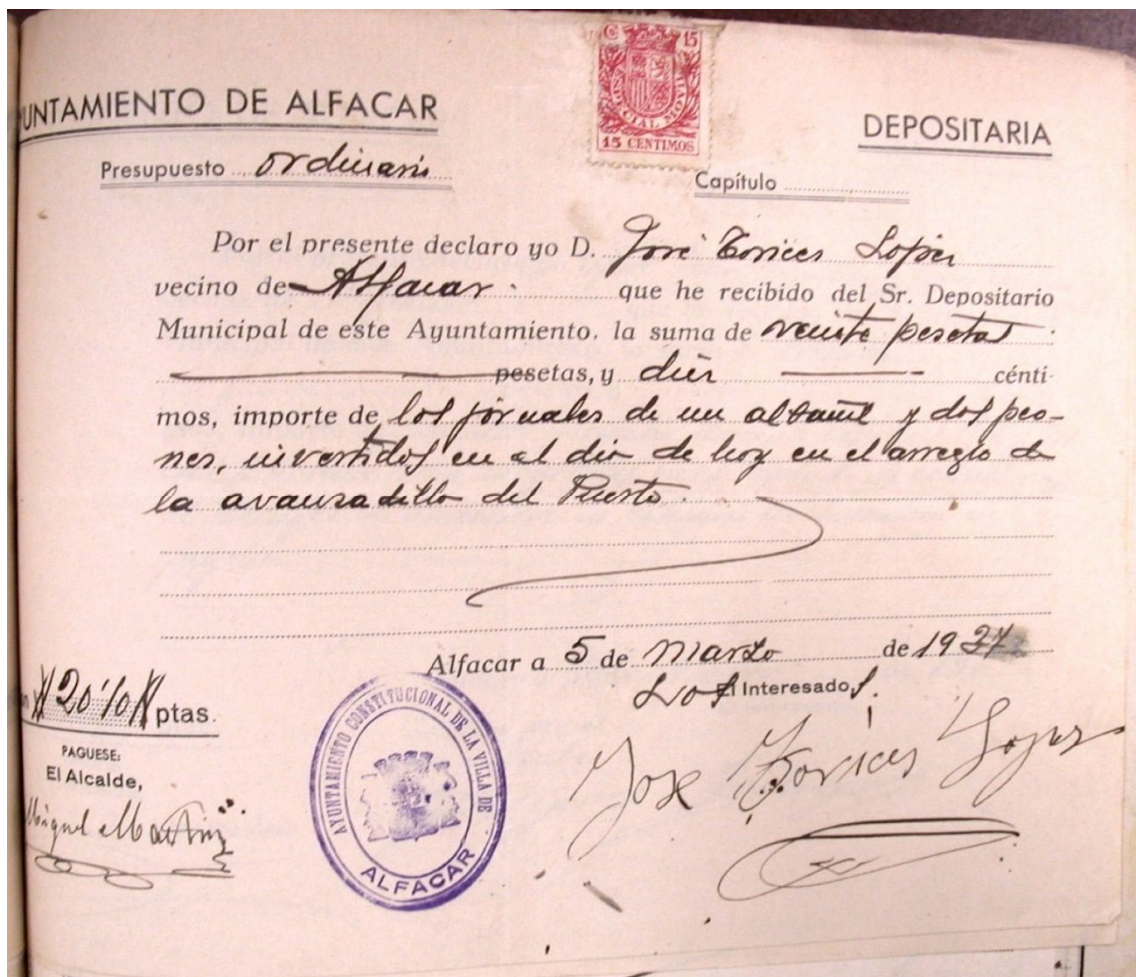 C 15
ESPECIAL MOVIL
15 CENTIMOS
UNTAMIENTO DE ALFACAR
DEPOSITARIA
Presupuesto ordinario
Capítulo
Por el presente declaro yo D. José Torices Lopez
vecino de Alfacar. que he recibido del Sr. Depositario
Municipal de este Ayuntamiento, la suma de veinte pesetas
pesetas, y diez cénti-
mos, importe de los jornales de un albañil y dos peo-
nes, invertidos en el dia de hoy en el arreglo de
la avanzadilla del Puerto.
Alfacar a 5 de Marzo de 1937
Los El Interesado s.
20'10 ptas.
PAGUESE:
El Alcalde,
Miguel Martin
AYUNTAMIENTO CONSTITUCIONAL DE LA VILLA DE
ALFACAR
Jose Torices Lopez